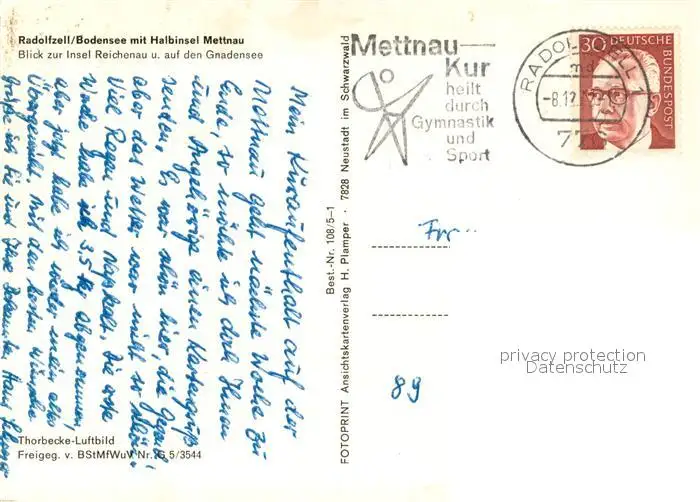 Radolfzell/Bodensee mit Halbinsel Mettnau
Blick zur Insel Reichenau u. auf den Gnadensee
Mein Kuraufenthalt auf der
Mettnau geht nächste Woche zu
Ende, so möchte ich doch Ihnen
und Angehörige einen Kartengruß
senden. Es war schön hier die Gegend
aber das Wetter war nicht so schön!
Viel Regen und Naßkalt. Die erste
Woche habe ich 3,5 kg abgenommen,
aber jetzt habe ich wieder mein altes
Übergewicht. Mit den besten Wünschen
grüße ich Sie und Ihre Hans
Thorbecke-Luftbild
Freigeg. v. BStMfWuV Nr. G 5/3544
FOTOPRINT Ansichtskartenverlag H. Plamper · 7828 Neustadt im Schwarzwald
Best.-Nr. 108/5-1
Mettnau-
Kur
heilt
durch
Gymnastik
und
Sport
RADOLFZELL 1
md
-8.12.
77
30 DEUTSCHE
BUNDESPOST
Frr
89
privacy protection
Datenschutz